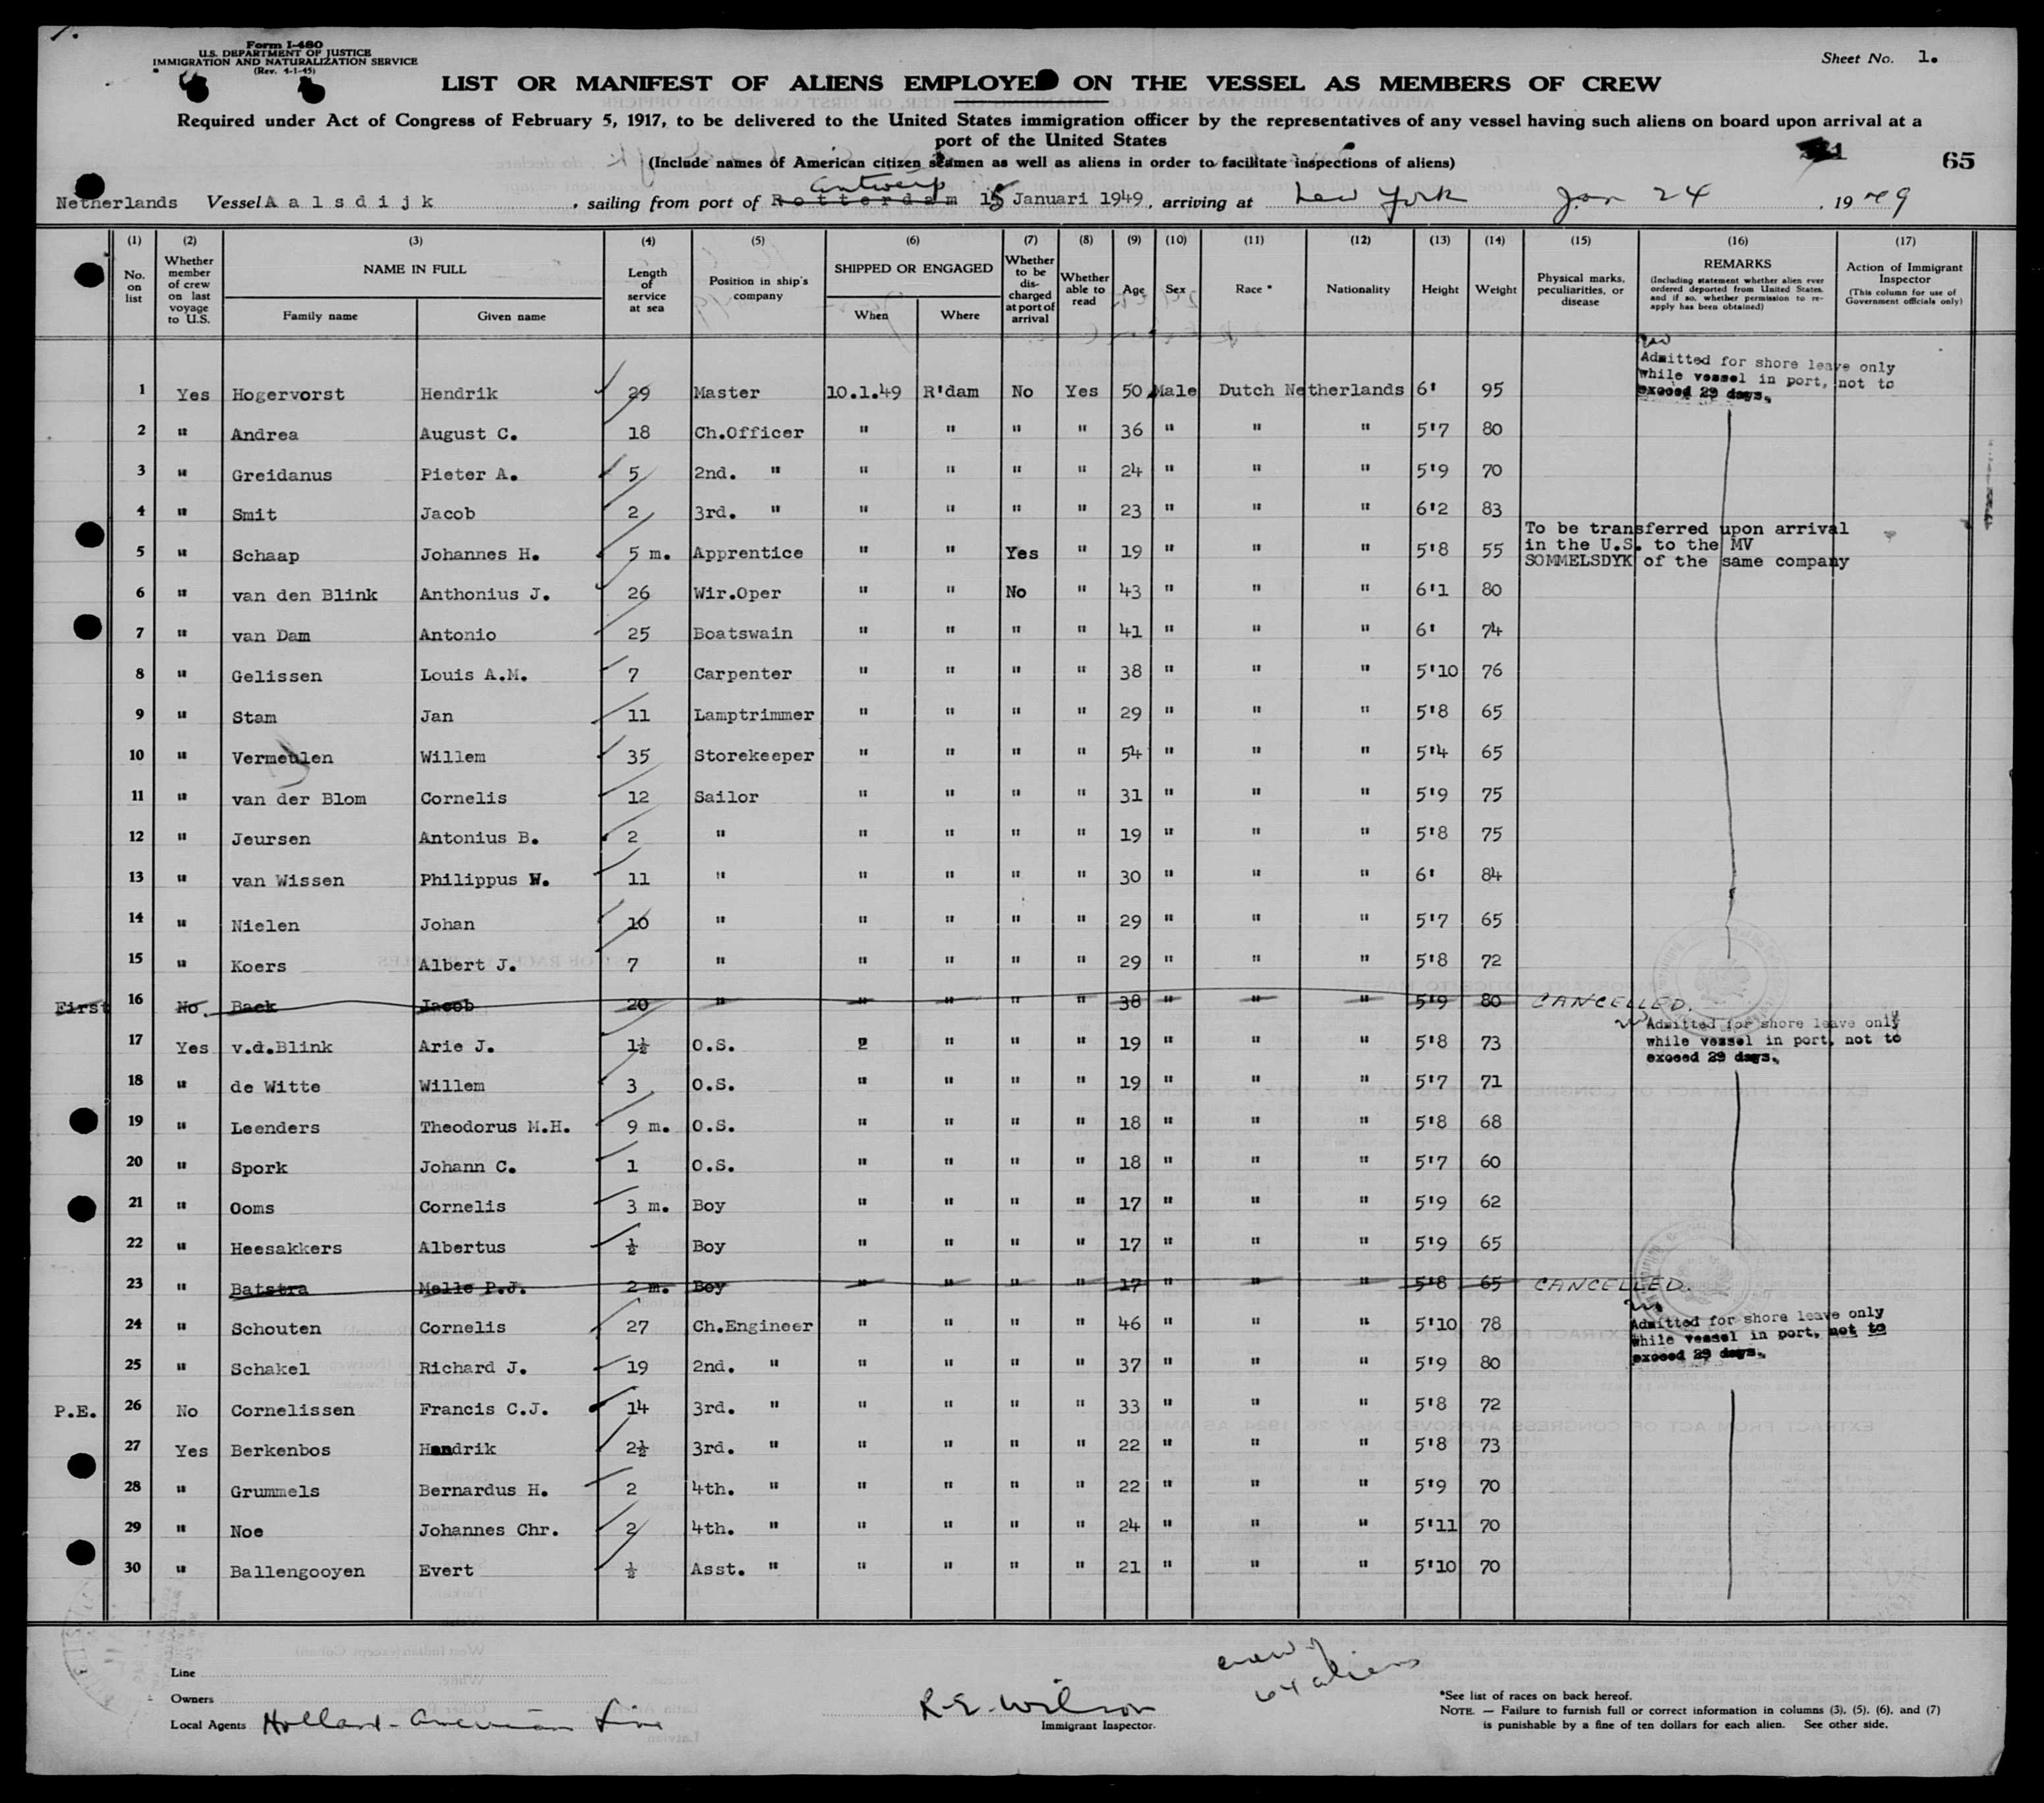 Form I-480
U.S. DEPARTMENT OF JUSTICE
IMMIGRATION AND NATURALIZATION SERVICE
(Rev. 4-1-45)
Sheet No. 1.
LIST OR MANIFEST OF ALIENS EMPLOYED ON THE VESSEL AS MEMBERS OF CREW
Required under Act of Congress of February 5, 1917, to be delivered to the United States immigration officer by the representatives of any vessel having such aliens on board upon arrival at a
port of the United States
(Include names of American citizen seamen as well as aliens in order to facilitate inspections of aliens)
65
Antwerp
Netherlands Vessel Aalsdijk, sailing from port of Rotterdam 15 Januari 1949, arriving at New York Jan 24, 1949
(1) (2) (3) (4) (5) (6) (7) (8) (9) (10) (11) (12) (13) (14) (15) (16) (17)
No. on list
Whether member of crew on last voyage to U.S.
NAME IN FULL
Family name
Given name
Length of service at sea
Position in ship's company
SHIPPED OR ENGAGED
When
Where
Whether to be discharged at port of arrival
Whether able to read
Age
Sex
Race *
Nationality
Height
Weight
Physical marks, peculiarities, or disease
REMARKS
(Including statement whether alien ever ordered deported from United States, and if so, whether permission to reapply has been obtained)
Action of Immigrant Inspector
(This column for use of Government officials only)
Admitted for shore leave only
while vessel in port, not to
exceed 29 days.
1 Yes Hogervorst Hendrik 29 Master 10.1.49 R'dam No Yes 50 Male Dutch Netherlands 6' 95
2 " Andrea August C. 18 Ch.Officer " " " " 36 " " " 5'7 80
3 " Greidanus Pieter A. 5 2nd. " " " " " 24 " " " 5'9 70
4 " Smit Jacob 2 3rd. " " " " " 23 " " " 6'2 83
To be transferred upon arrival
in the U.S. to the MV
SOMMELSDYK of the same company
5 " Schaap Johannes H. 5 m. Apprentice " " Yes " 19 " " " 5'8 55
6 " van den Blink Anthonius J. 26 Wir.Oper " " No " 43 " " " 6'1 80
7 " van Dam Antonio 25 Boatswain " " " " 41 " " " 6' 74
8 " Gelissen Louis A.M. 7 Carpenter " " " " 38 " " " 5'10 76
9 " Stam Jan 11 Lamptrimmer " " " " 29 " " " 5'8 65
10 " Vermeulen Willem 35 Storekeeper " " " " 54 " " " 5'4 65
11 " van der Blom Cornelis 12 Sailor " " " " 31 " " " 5'9 75
12 " Jeursen Antonius B. 2 " " " " " 19 " " " 5'8 75
13 " van Wissen Philippus W. 11 " " " " " 30 " " " 6' 84
14 " Nielen Johan 10 " " " " " 29 " " " 5'7 65
15 " Koers Albert J. 7 " " " " " 29 " " " 5'8 72
First 16 No. Back Jacob 20 " " " " " 38 " " " 5'9 80 CANCELLED.
Admitted for shore leave only
while vessel in port, not to
exceed 29 days.
17 Yes v.d.Blink Arie J. 1½ O.S. " " " " 19 " " " 5'8 73
18 " de Witte Willem 3 O.S. " " " " 19 " " " 5'7 71
19 " Leenders Theodorus M.H. 9 m. O.S. " " " " 18 " " " 5'8 68
20 " Spork Johann C. 1 O.S. " " " " 18 " " " 5'7 60
21 " Ooms Cornelis 3 m. Boy " " " " 17 " " " 5'9 62
22 " Heesakkers Albertus ½ Boy " " " " 17 " " " 5'9 65
23 " Batstra Melle P.J. 2 m. Boy " " " " 17 " " " 5'8 65 CANCELLED.
Admitted for shore leave only
while vessel in port, not to
exceed 29 days.
24 " Schouten Cornelis 27 Ch.Engineer " " " " 46 " " " 5'10 78
25 " Schakel Richard J. 19 2nd. " " " " " 37 " " " 5'9 80
P.E. 26 No Cornelissen Francis C.J. 14 3rd. " " " " " 33 " " " 5'8 72
27 Yes Berkenbos Hendrik 2½ 3rd. " " " " " 22 " " " 5'8 73
28 " Grummels Bernardus H. 2 4th. " " " " " 22 " " " 5'9 70
29 " Noe Johannes Chr. 2 4th. " " " " " 24 " " " 5'11 70
30 " Ballengooyen Evert ½ Asst. " " " " " 21 " " " 5'10 70
Line
Owners
Local Agents Holland-American Line
R.E. Wilson
Immigrant Inspector.
crew of
64 aliens
*See list of races on back hereof.
NOTE. — Failure to furnish full or correct information in columns (3), (5), (6), and (7)
is punishable by a fine of ten dollars for each alien. See other side.